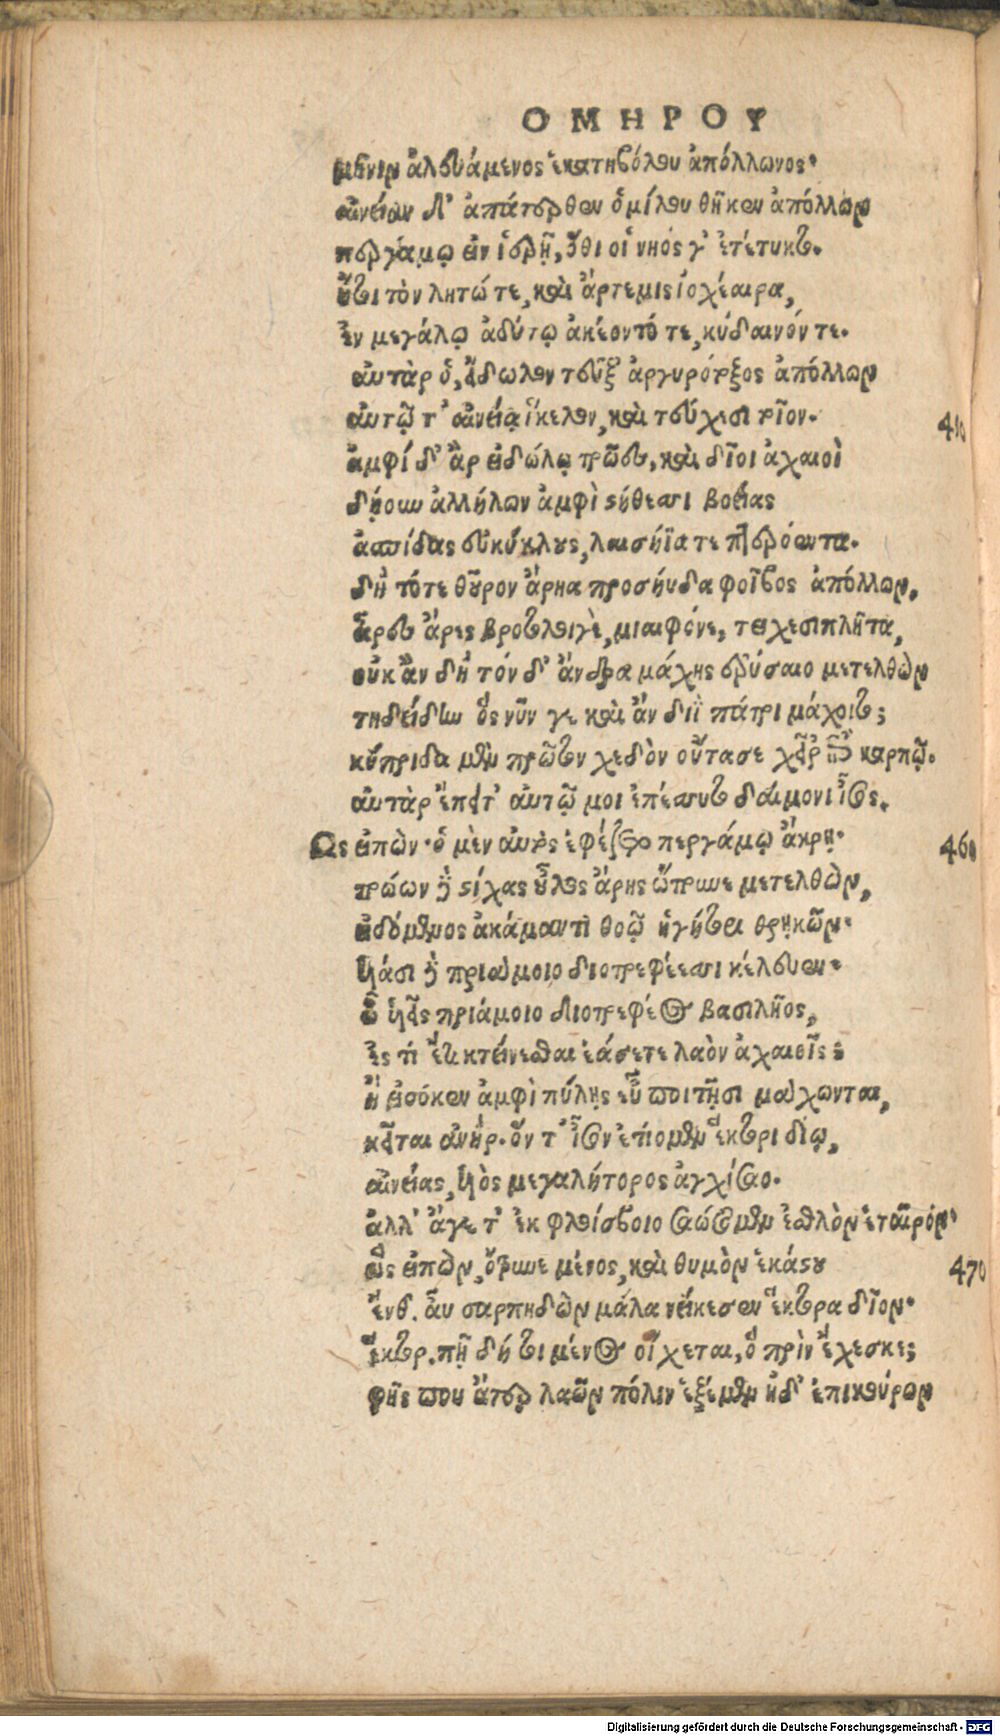 ΟΜΗΡΟΥ
μῆνιν ἀλευάμενος ἑκατηβόλου ἀπόλλωνος·
αἰνείαν δ' ἀπάτερθεν ὁμίλου θῆκεν ἀπόλλων
περγάμῳ εἰν ἱερῇ, ὅθι οἱ νηός γ' ἐτέτυκτο.
ἤτοι τὸν λητώ τε, καὶ ἄρτεμις ἰοχέαιρα,
ἐν μεγάλῳ ἀδύτῳ ἀκέοντό τε, κύδαινόν τε.
αὐτὰρ ὁ, εἴδωλον τεῦξ' ἀργυρότοξος ἀπόλλων
αὐτῷ τ' αἰνείᾳ ἴκελον, καὶ τεύχεσι τοῖον.
410
ἀμφὶ δ' ἂρ εἰδώλῳ τρῶες, καὶ δῖοι ἀχαιοὶ
δῄουν ἀλλήλων ἀμφὶ στήθεσσι βοείας
ἀσπίδας εὐκύκλους, λαισήϊά τε πτερόεντα.
δὴ τότε θοῦρον ἄρηα προσηύδα φοῖβος ἀπόλλων,
ἆρες ἄρες βροτολοιγὲ, μιαιφόνε, τειχεσιπλῆτα,
οὐκ ἂν δὴ τόν δ' ἄνδρα μάχης ἐρύσαιο μετελθὼν
τυδείδην ὃς νῦν γε καὶ ἂν διῒ πάτρι μάχοιτο;
κύπριδα μὲν πρῶτον σχεδὸν οὔτασε χεῖρ' ἐπὶ καρπῷ.
αὐτὰρ ἔπειτ' αὐτῷ μοι ἐπέσσυτο δαίμονι ἶσος.
Ως εἰπὼν· ὁ μὲν αὐτὸς ἐφέζετο περγάμῳ ἄκρῃ·
460
τρώων δὲ στίχας οὖλος ἄρης ὤτρυνε μετελθὼν,
εἰδόμενος ἀκάμαντι θοῷ ἡγήτορι θρῃκῶν·
υἱάσι δὲ πριάμοιο διοτρεφέεσσι κέλευεν·
ὦ υἱεῖς πριάμοιο διοτρεφέος βασιλῆος,
ἐς τί ἔτι κτείνεσθαι ἐάσετε λαὸν ἀχαιοῖς;
ἢ εἰσόκεν ἀμφὶ πύλῃς εὖ ποιητῇσι μάχωνται,
κεῖται ἀνὴρ· ὅν τ' ἶσον ἐτίομεν ἕκτορι δίῳ,
αἰνείας, υἱὸς μεγαλήτορος ἀγχίσαο.
ἀλλ' ἄγε τ' ἐκ φλοίσβοιο σαώσομεν ἐσθλὸν ἑταῖρον·
ὣς εἰπὼν, ὄτρυνε μένος, καὶ θυμὸν ἑκάστου
470
ἔνθ. αὖ σαρπηδὼν μάλα νείκεσεν ἕκτορα δῖον·
ἕκτορ. πῇ δή τοι μένος οἴχεται, ὃ πρὶν ἔχεσκες;
φῆς που ἄτερ λαῶν πόλιν ἑξέμεν ἠδ' ἐπικούρων
Digitalisierung gefördert durch die Deutsche Forschungsgemeinschaft - DFG